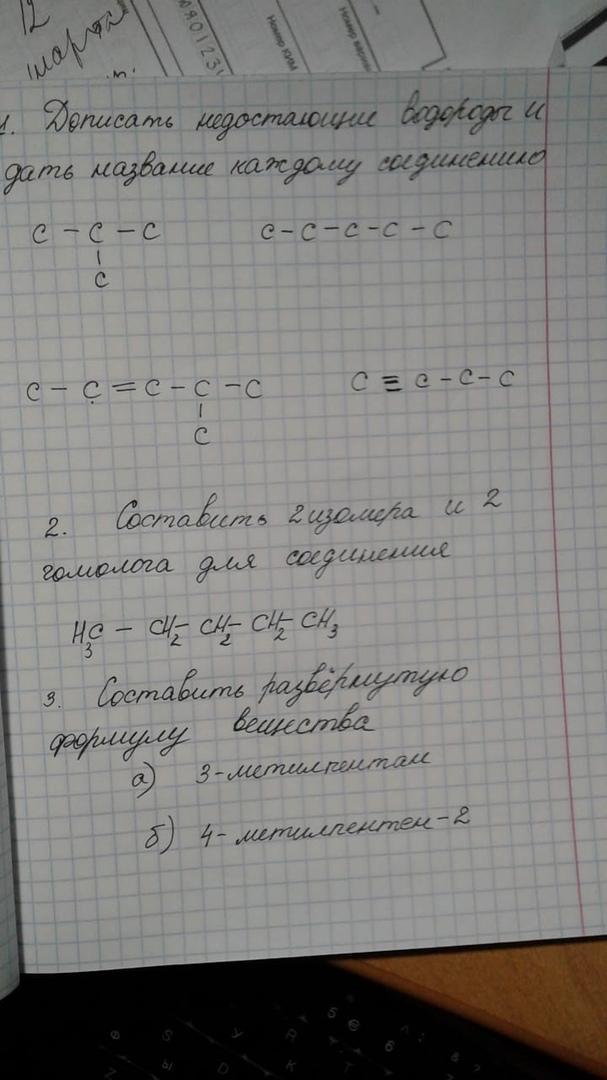 12
марта
Номер
1. Дописать недостающие водороды и
дать название каждому соединению
C - C - C
|
C
C - C - C - C - C
C - C = C - C - C
|
C
C ≡ C - C - C
2. Составить 2 изомера и 2
гомолога для соединения
H₃C - CH₂- CH₂- CH₂- CH₃
3. Составить развёрнутую
формулу вещества
а) 3-метилпентан
б) 4-метилпентен-2